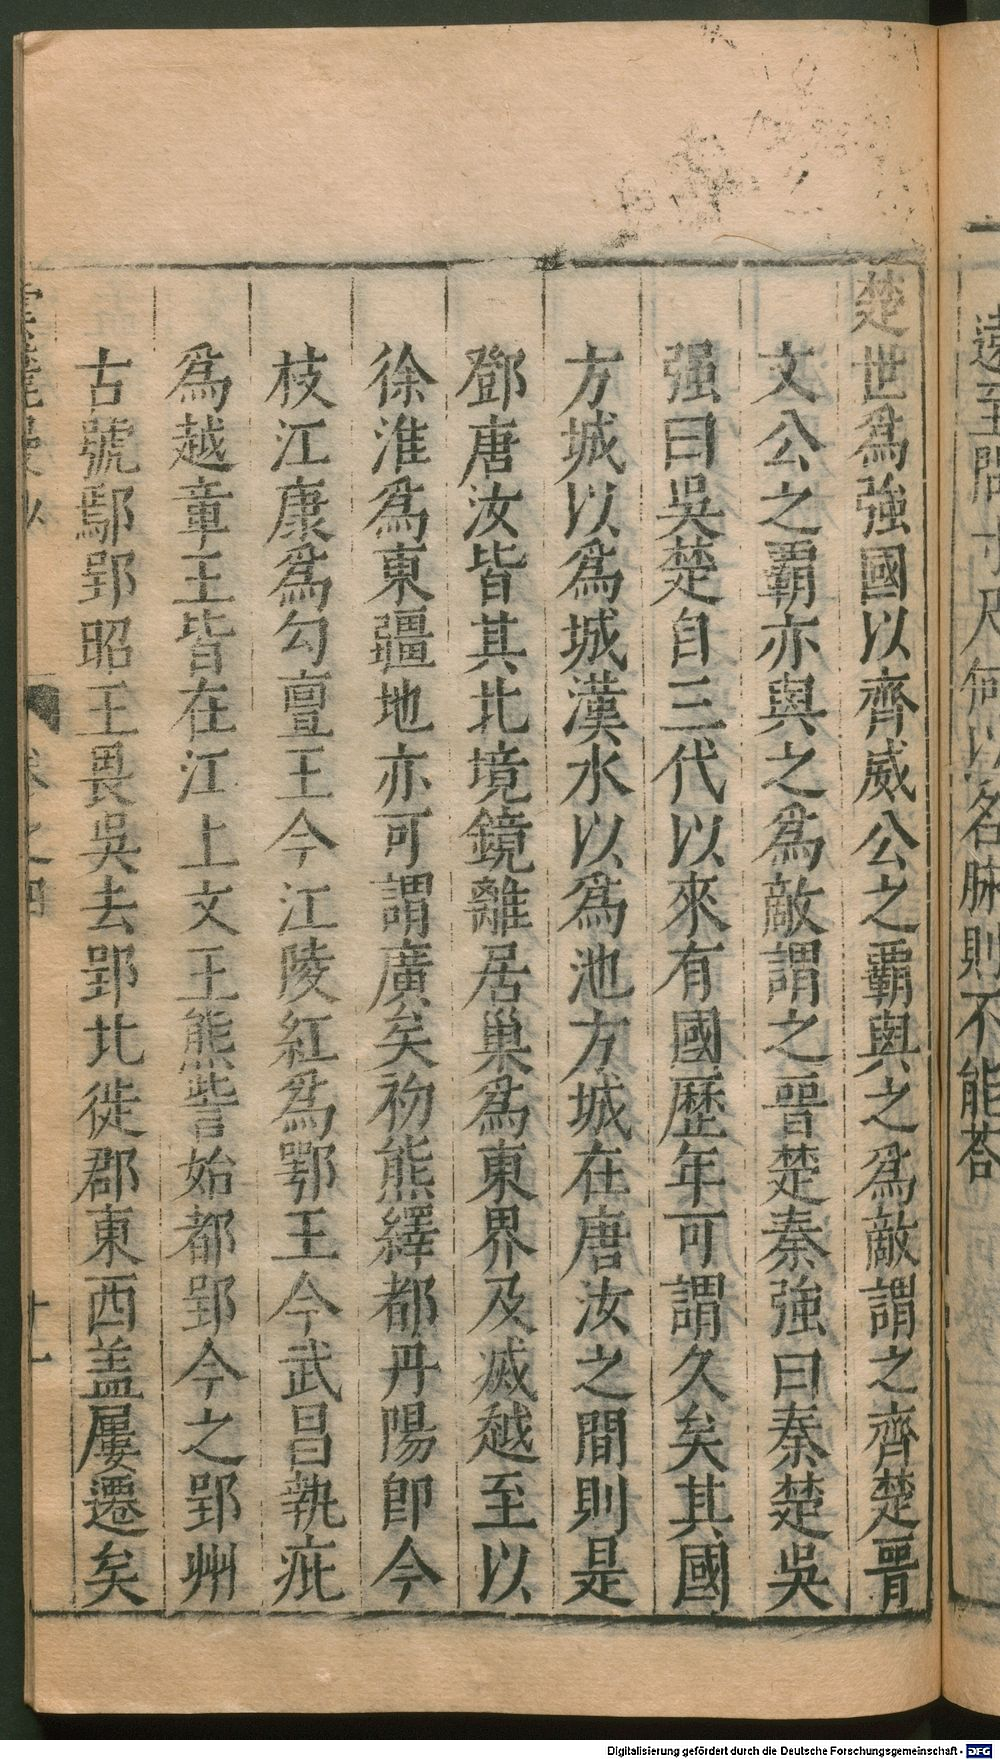 楚世爲強國以齊威公之覇與之爲敵謂之齊楚晋
文公之覇亦與之爲敵謂之晋楚秦強曰秦楚吳
强曰吳楚自三代以來有國歷年可謂久矣其國
方城以爲城漢水以爲池方城在唐汝之間則是
鄧唐汝皆其北境鏡離居巢爲東界及滅越至以
徐淮爲東疆地亦可謂廣矣初熊繹都丹陽即今
枝江康爲勾亶王今江陵紅爲鄂王今武昌執疵
爲越章王皆在江上文王熊訾始都郢今之郢州
古號鄢郢昭王畏吳去郢北徙郡東西盖屢遷矣
卷之四
十一
Digitalisierung gefördert durch die Deutsche Forschungsgemeinschaft - DFG